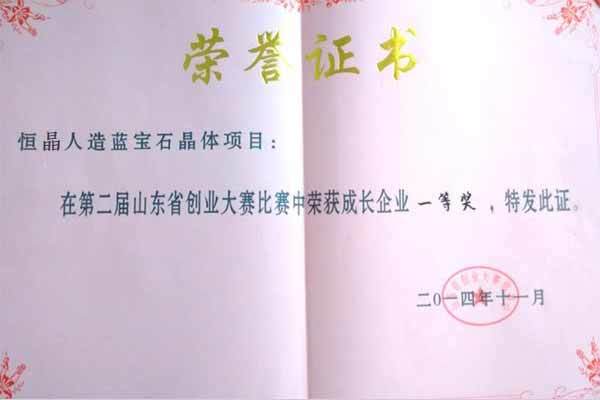 荣誉证书
恒晶人造蓝宝石晶体项目：
在第二届山东省创业大赛比赛中荣获成长企业一等奖，特发此证。
二〇一四年十一月